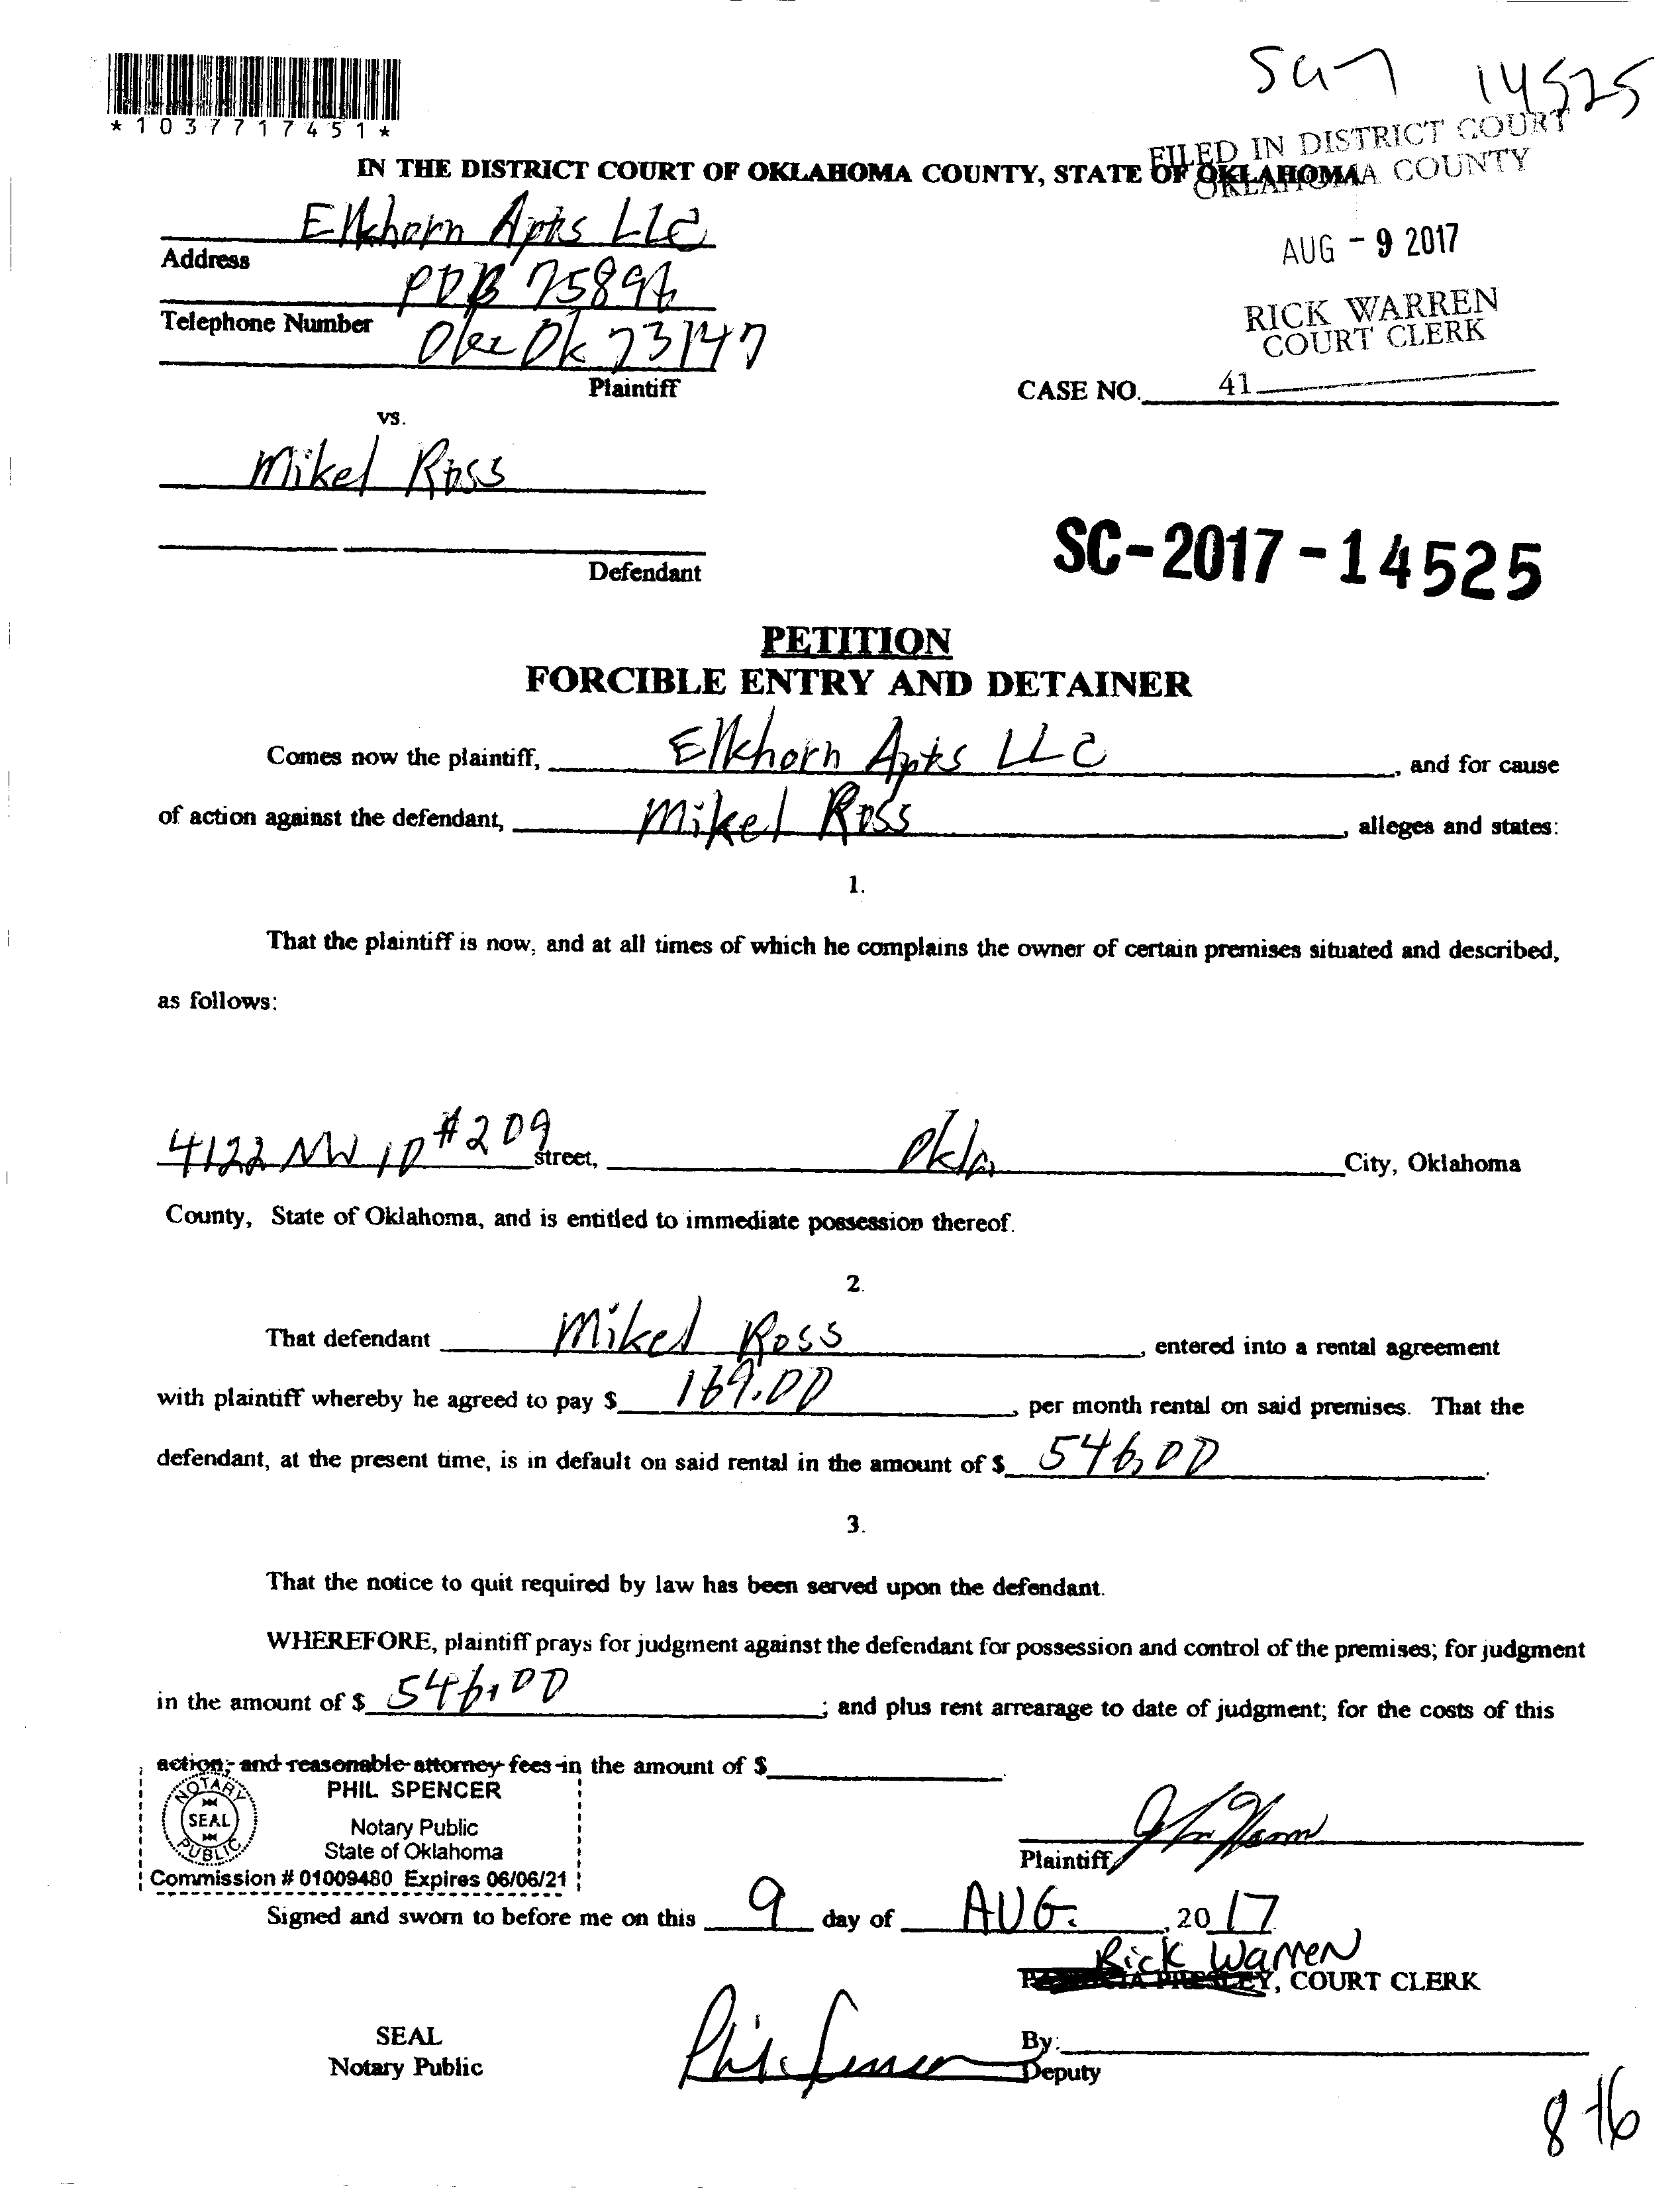 SC17 14525
*1037717451*
FILED IN DISTRICT COURT
OKLAHOMA COUNTY
IN THE DISTRICT COURT OF OKLAHOMA COUNTY, STATE OF OKLAHOMA
Elkhorn Apts LLC
AUG - 9 2017
Address
POB 75896
RICK WARREN
COURT CLERK
Telephone Number
Okc Ok 73147
Plaintiff
CASE NO. 41
vs.
Mikel Ross
SC-2017-14525
Defendant
PETITION
FORCIBLE ENTRY AND DETAINER
Comes now the plaintiff, Elkhorn Apts LLC, and for cause
of action against the defendant, Mikel Ross, alleges and states:
1.
That the plaintiff is now, and at all times of which he complains the owner of certain premises situated and described,
as follows:
4122 NW 10 #209 street, Okla City, Oklahoma
County, State of Oklahoma, and is entitled to immediate possession thereof.
2.
That defendant Mikel Ross, entered into a rental agreement
with plaintiff whereby he agreed to pay $ 169.00, per month rental on said premises. That the
defendant, at the present time, is in default on said rental in the amount of $ 546.00.
3.
That the notice to quit required by law has been served upon the defendant.
WHEREFORE, plaintiff prays for judgment against the defendant for possession and control of the premises; for judgment
in the amount of $ 546.00; and plus rent arrearage to date of judgment; for the costs of this
action; and reasonable attorney fees in the amount of $
NOTARY PUBLIC SEAL
PHIL SPENCER
Notary Public
State of Oklahoma
Commission # 01009480 Expires 06/06/21
Plaintiff
Signed and sworn to before me on this 9 day of AUG., 2017.
Rick Warren
PATRICIA PRESLEY, COURT CLERK
SEAL
Notary Public
Phil Spencer
By:
Deputy
8-16